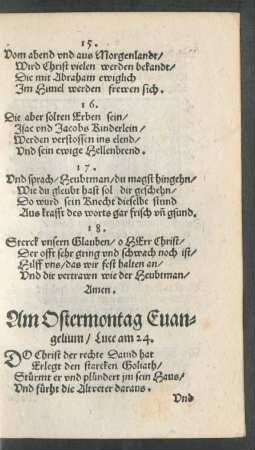 15.
Vom abend vnd aus Morgenlandt/
Wird Christ vielen werden bekandt/
Die mit Abraham ewiglich
Im Himel werden frewen sich.
16.
Die aber solten Erben sein/
Isac vnd Jacobs Kinderlein/
Werden verstossen ins elend/
Vnd sein ewige Hellenbrend.
17.
Vnd sprach/ Heubtman/ du magst hingehn/
Wie du gleubt hast sol dir geschehn/
Do wurd sein Knecht dieselbe stund
Aus krafft des worts gar frisch vñ gsund.
18.
Sterck vnsern Glauben/ o HErr Christ/
Der offt sehr gring vnd schwach noch ist/
Hilff vns/ das wir fest halten an/
Vnd dir vertrawn wie der Heubtman/
Amen.
Am Ostermontag Euan-
gelium/ Luce am 24.
DO Christ der rechte Dauid hat
Erlegt den starcken Goliath/
Stürmt er vnd plündert jm sein Haus/
Vnd fürht die Altveter daraus.
Vnd